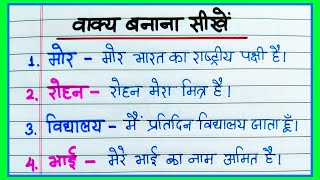 वाक्य बनाना सीखें
1. मोर – मोर भारत का राष्ट्रीय पक्षी है।
2. रोहन – रोहन मेरा मित्र है।
3. विद्यालय – मैं प्रतिदिन विद्यालय जाता हूँ।
4. भाई – मेरे भाई का नाम अमित है।